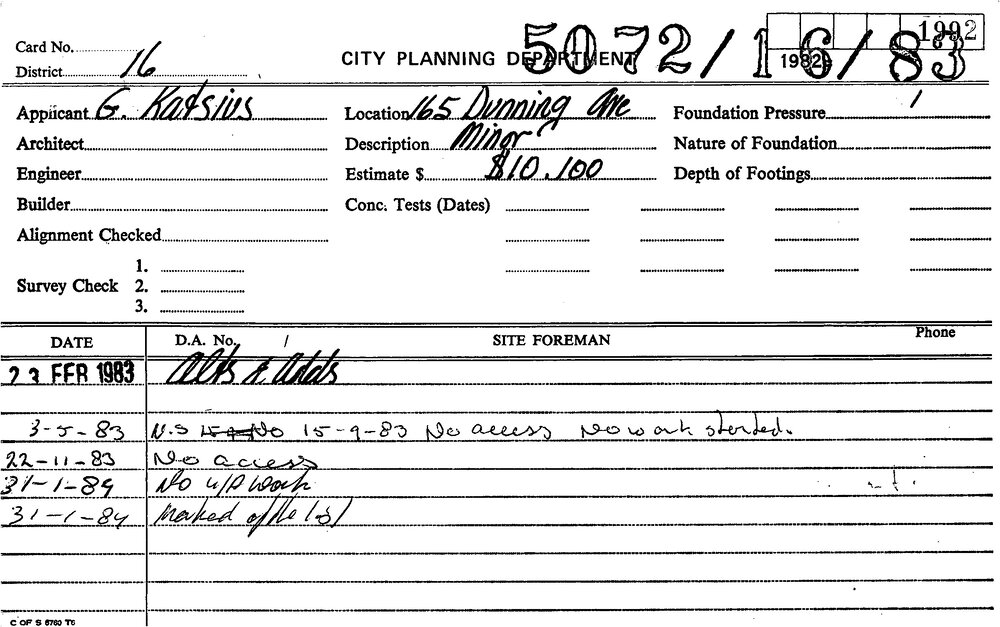 5072/16/83
1992
1982
Card No.
District 16
CITY PLANNING DEPARTMENT
Applicant G. Katsius Location 165 Dunning Ave Foundation Pressure
Architect Description Minor Nature of Foundation
Engineer Estimate $ $10.100 Depth of Footings
Builder Conc. Tests (Dates)
Alignment Checked
1.
Survey Check 2.
3.
DATE D.A. No. / SITE FOREMAN Phone
23 FEB 1983 Alts & Adds
3-5-83 N.S 15-9-83 No access No work started.
22-11-83 No access
31-1-84 No u/p work
31-1-84 Marked off the list
C OF S 6760 T6